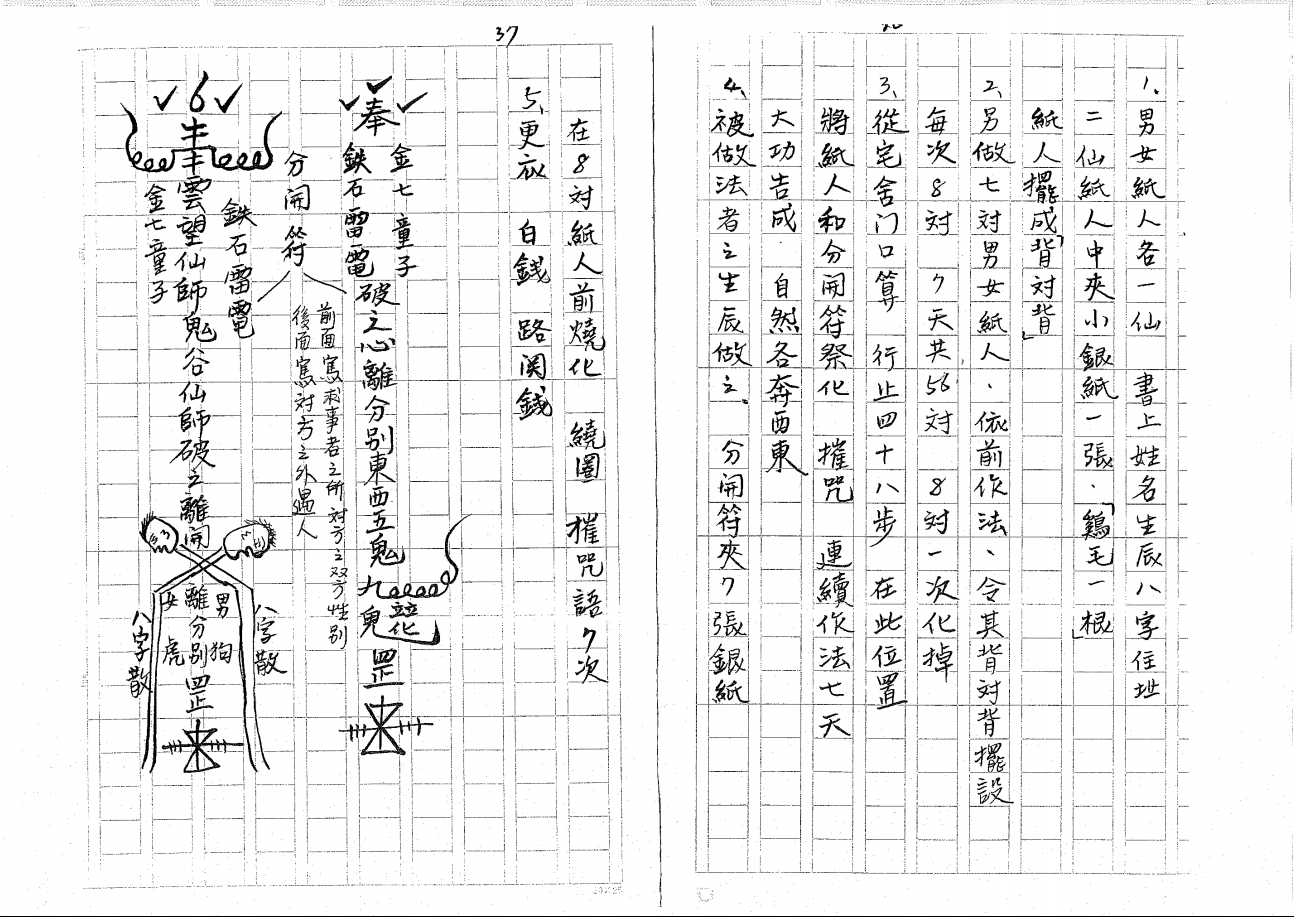 1、男女紙人各一仙 書上姓名生辰八字住址
二仙紙人中夾小銀紙一張.「鷄毛一根」
紙人擺成「背対背」
2、另做七対男女紙人、依前作法、令其背対背擺設
每次8対 7天共56対 8対一次化掉
3、從宅舍门口算 行止四十八步 在此位置
將紙人和分開符祭化 摧咒 連續作法七天
大功吿成 自然各奔西東
4、被做法者之生辰做之、 分開符夾7張銀紙
37
在8対紙人前燒化 繞圈 摧咒語7次
5、更衣 白錢 路関錢
奉
金七童子
鉄石雷電
破之心離分别東西五鬼九鬼
罡
分開符
前面寫求事者之所対方之双方性别
後面寫対方之外遇人
6
鉄石雷電
雲望仙師鬼谷仙師破之離開
金七童子
男狗
離分别罡
女虎
八字散
八字散